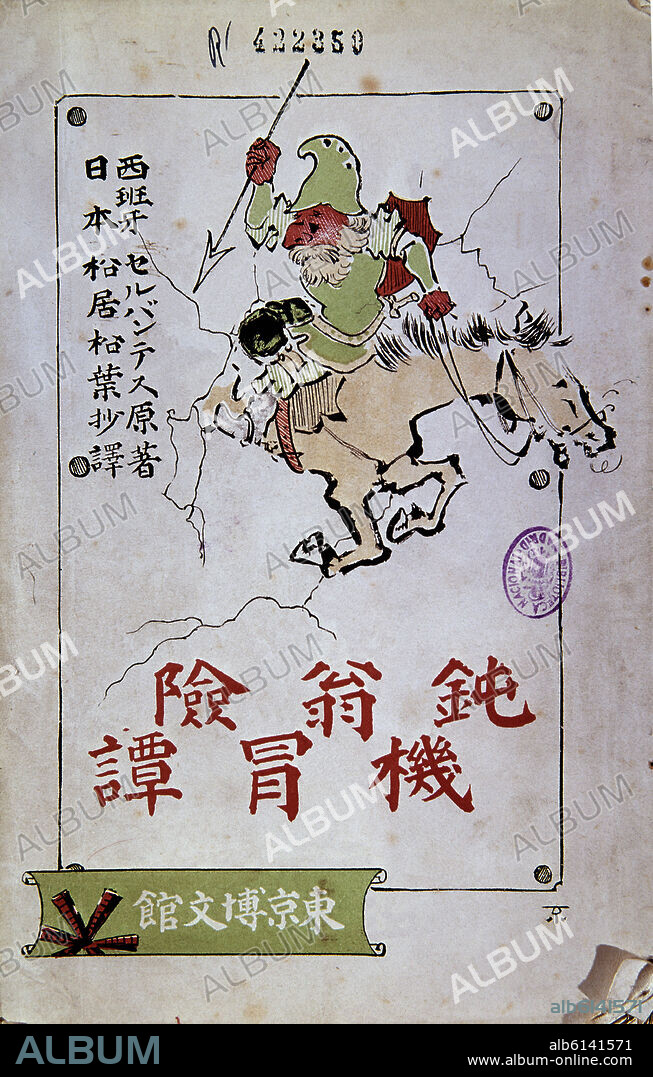 西班牙 セルバンテス原著
日本 松居松葉抄譯
鈍機翁冒險譚
東京博文館
BIBLIOTECA
ALBUM
alb6141571
ALBUM
alb6141571
www.album-online.com